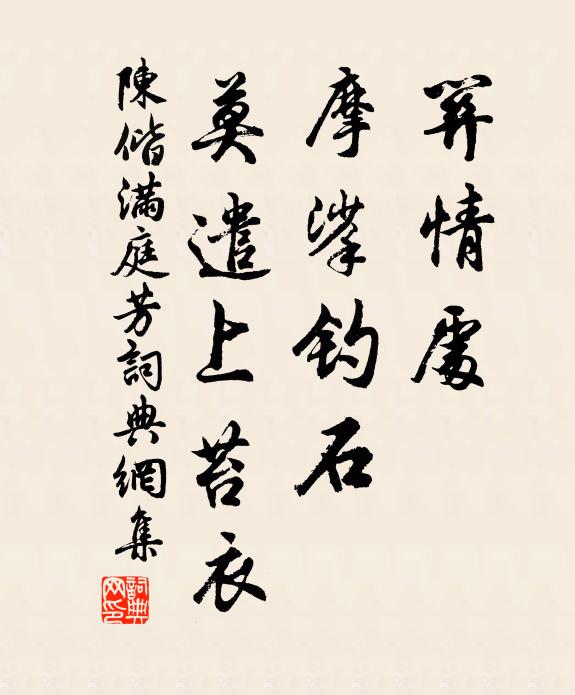 關情處
摩挲钓石
莫遣上苔衣
陳偕满庭芳詞典網集
詞典网印